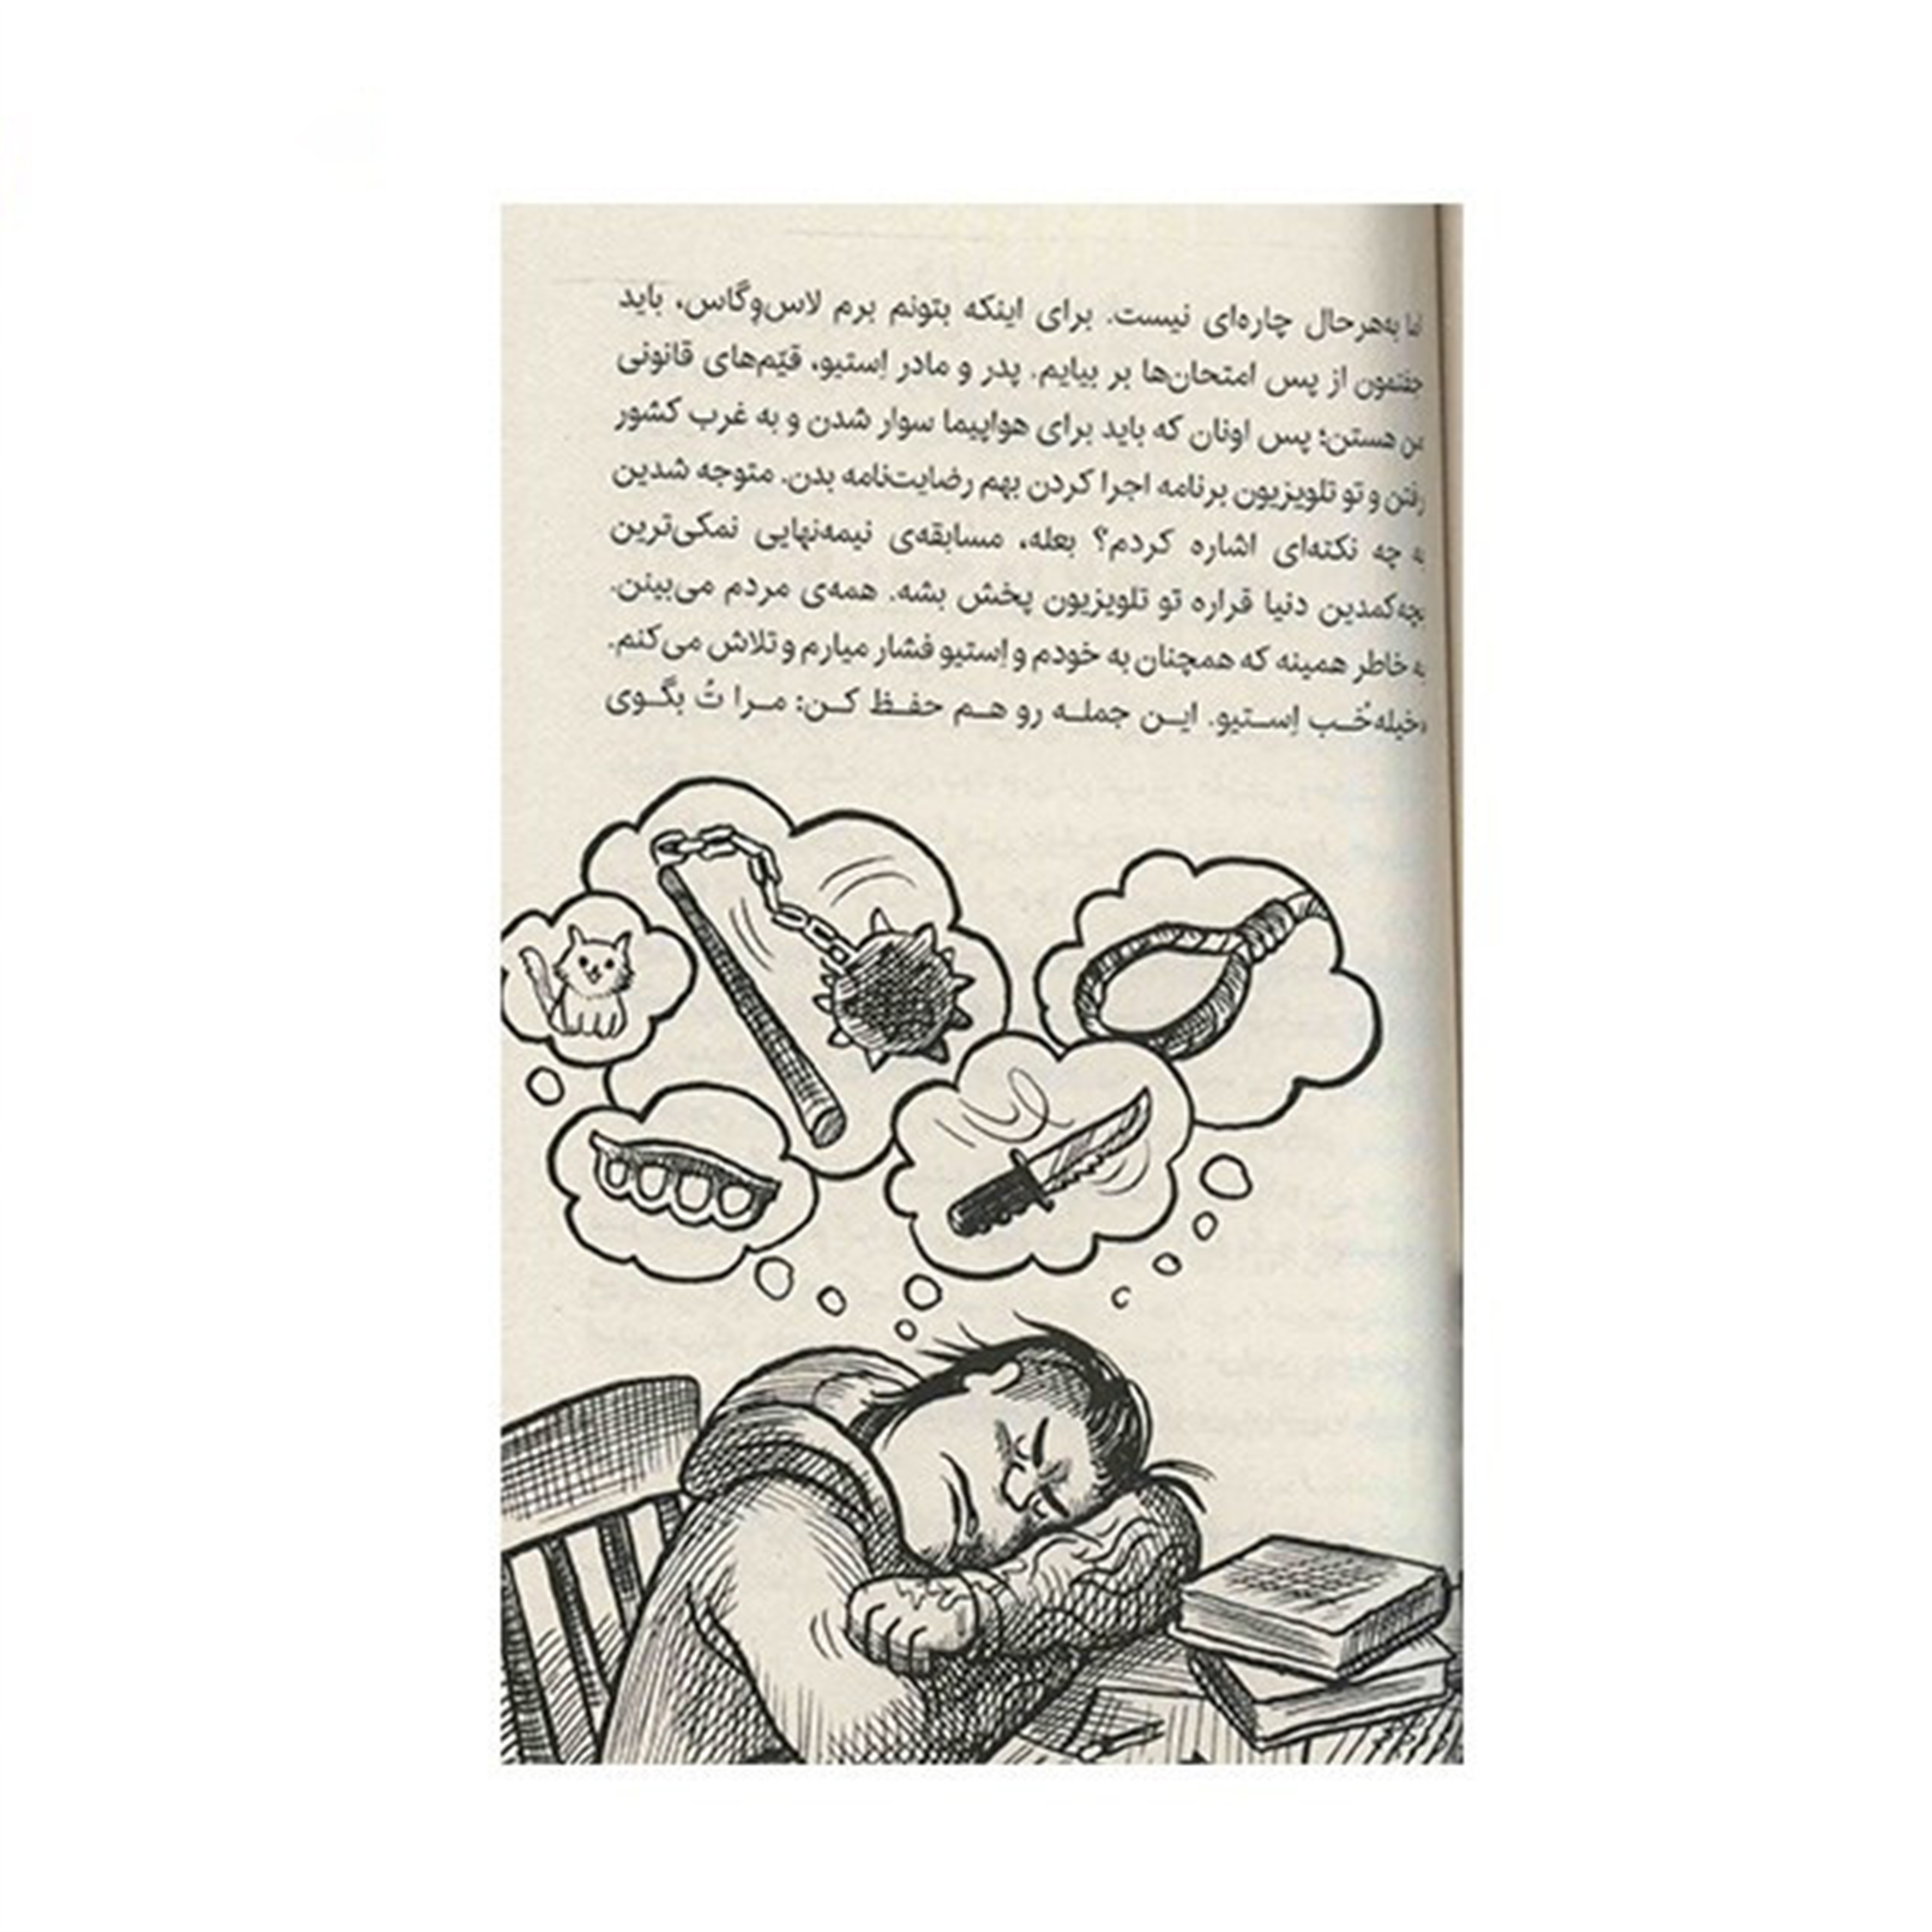 اما به‌هرحال چاره‌ای نیست. برای اینکه بتونم برم لاس‌وِگاس، باید
جفتمون از پس امتحان‌ها بر بیایم. پدر و مادر اِستیو، قیّم‌های قانونی
من هستن؛ پس اونان که باید برای هواپیما سوار شدن و به غرب کشور
رفتن و تو تلویزیون برنامه اجرا کردن بهم رضایت‌نامه بدن. متوجه شدین
به چه نکته‌ای اشاره کردم؟ بعله، مسابقه‌ی نیمه‌نهایی نمکی‌ترین
بچه‌کمدین دنیا قراره تو تلویزیون پخش بشه. همه‌ی مردم می‌بینن.
به خاطر همینه که همچنان به خودم و اِستیو فشار میارم و تلاش می‌کنم.
«خیله‌خُـب اِسـتیو. ایـن جملـه رو هـم حفـظ کـن: مـرا تُ بگـوی